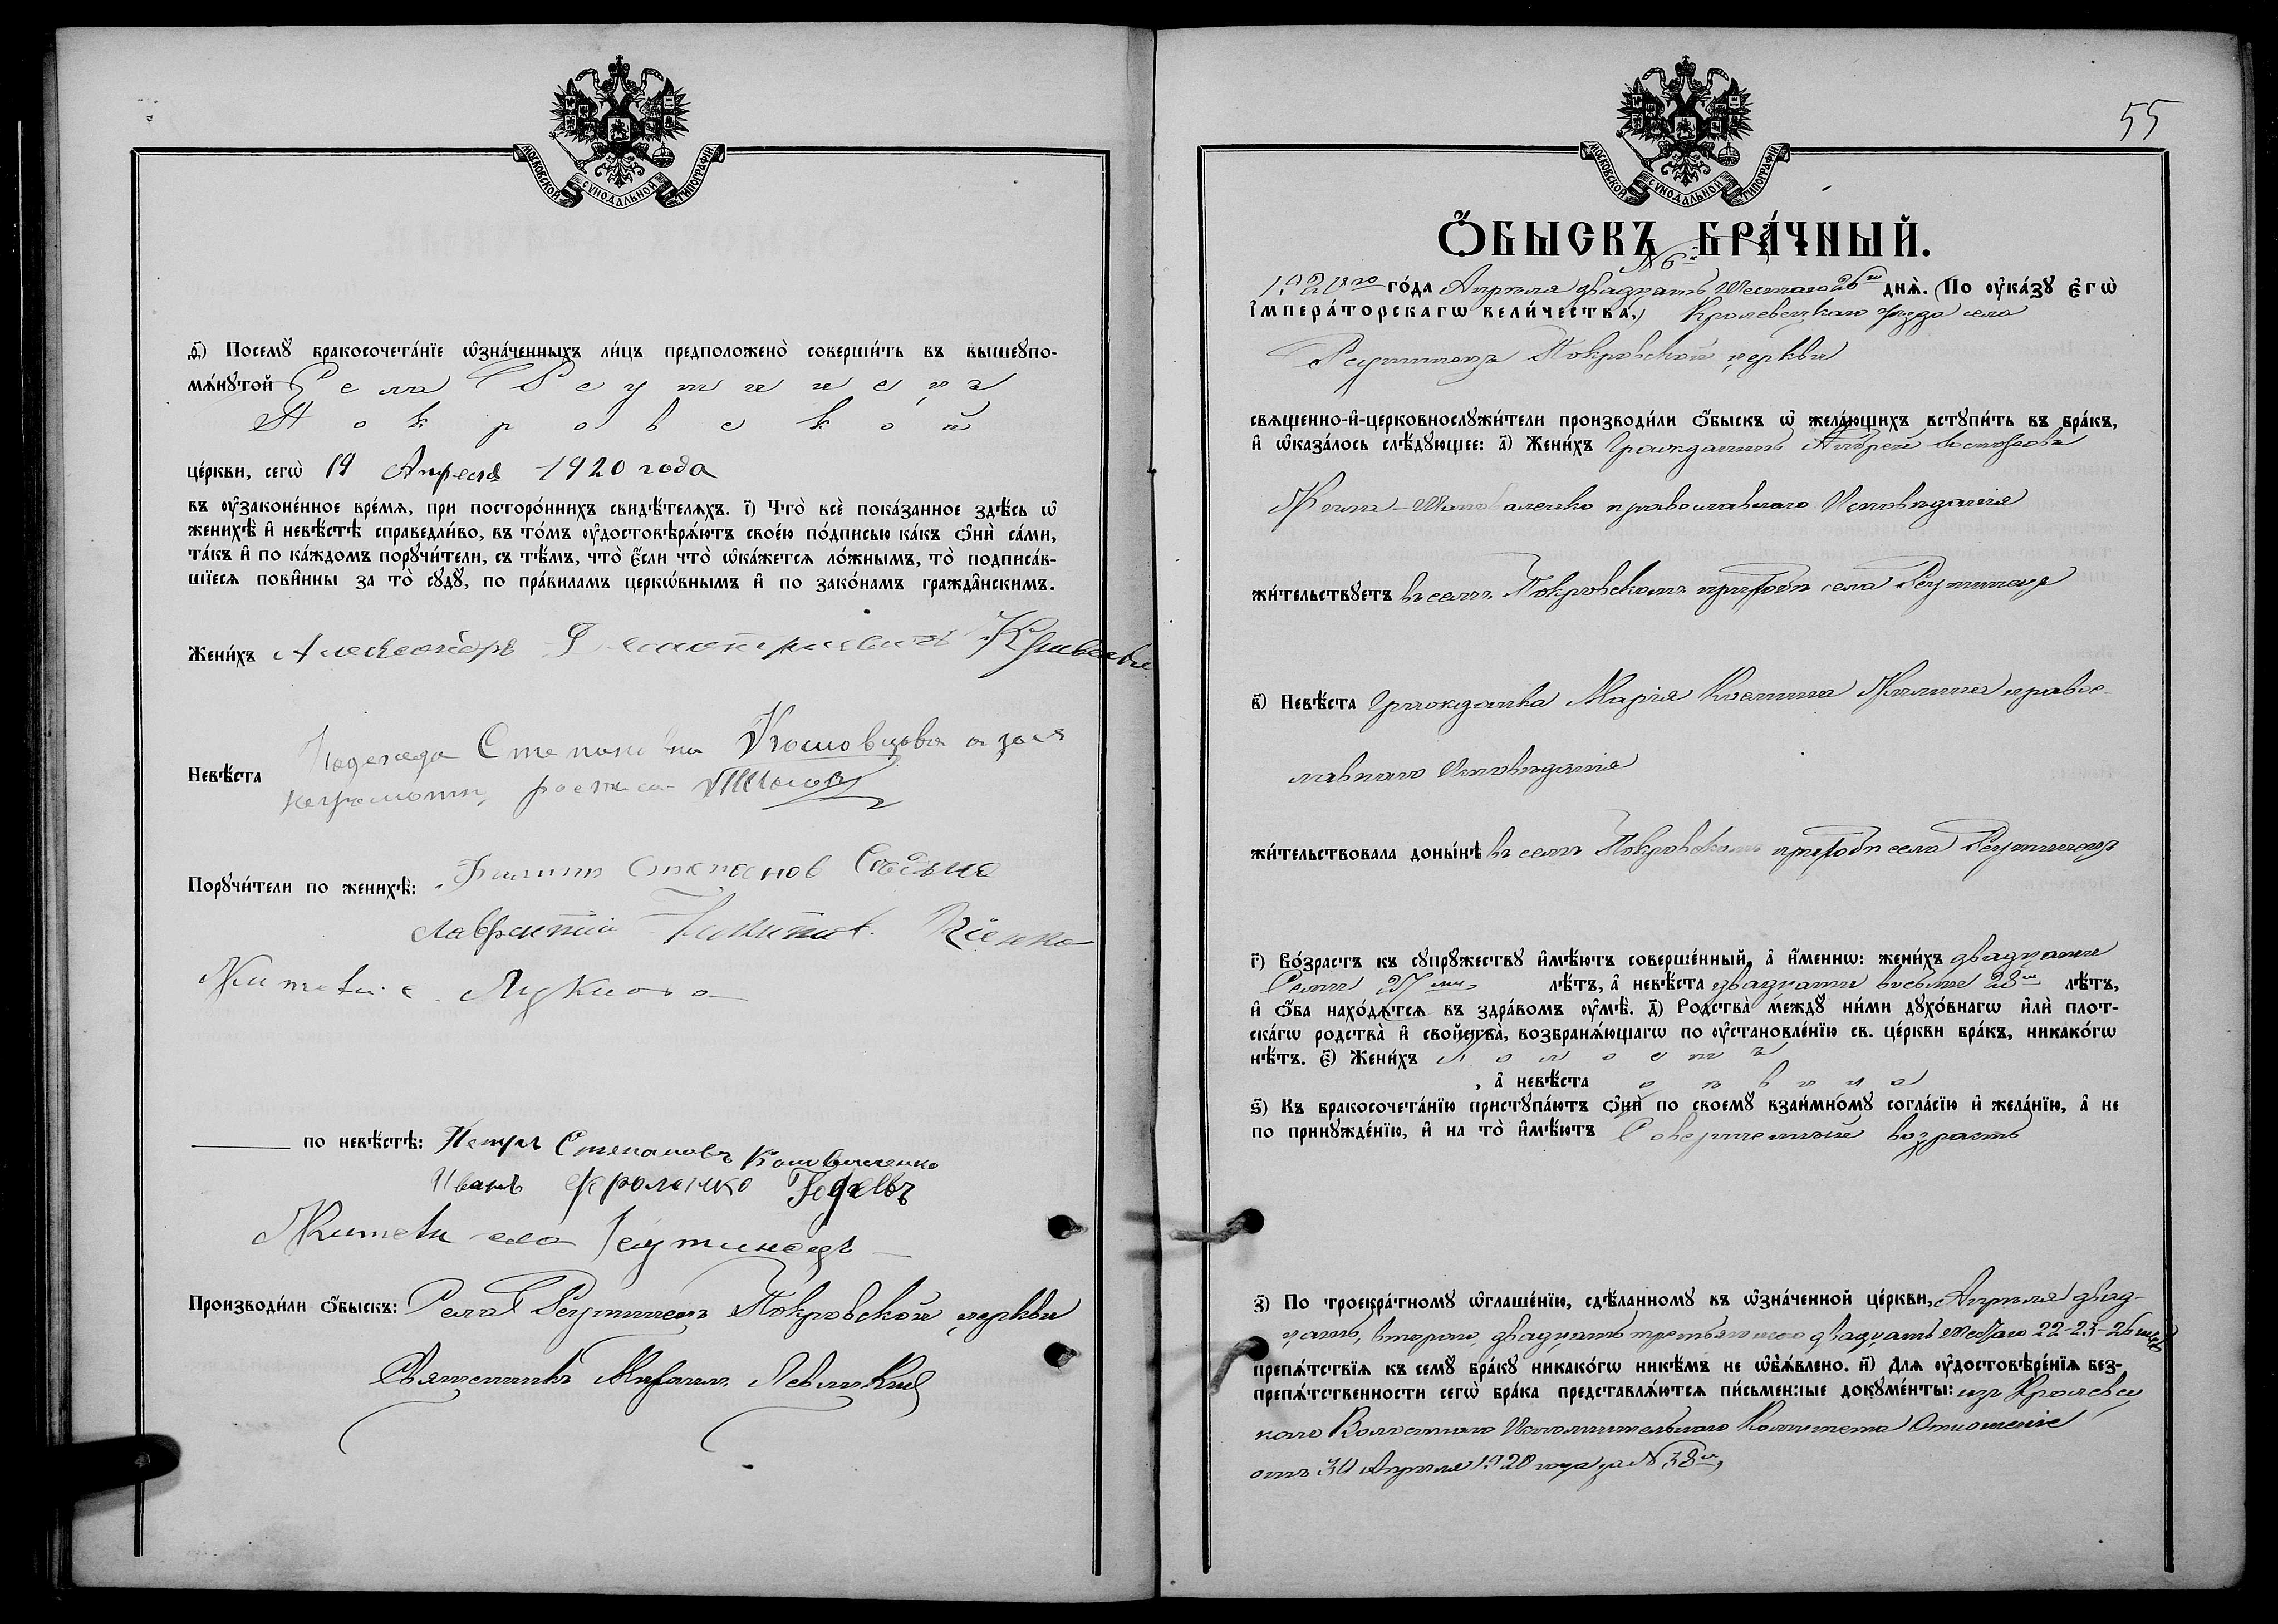 МОСКОВСКОЙ СѴНОДАЛЬНОЙ ТИПОГРАФІИ
ѳ҃) Посемꙋ̀ бракосочета́нїе ѡ҆зна́ченныхъ ли́цъ предположено̀ соверши́ть въ вышеупо-
мѧ́нꙋтой Села Реутинецъ
Покровской
це́ркви, сегѡ̀ 19 Апреля 1920 года
въ оу҆законе́нное вре́мѧ, при посторо́ннихъ свидѣ́телѧхъ. і҃) Что̀ всѐ пока́занное здѣ́сь ѡ҆
женихѣ̀ и҆ невѣ́стѣ справедли́во, въ то́мъ оу҆достовѣрѧ́ютъ свое́ю по́дписью ка́къ ѻ҆нѝ са́ми,
та́къ и҆ по ка́ждомъ порꙋчи́тели, съ тѣ́мъ, что̀ є҆́сли что̀ ѡ҆ка́жетсѧ ло́жнымъ, то̀ подписа́в-
шїесѧ пови́нны за то̀ сꙋдꙋ̀, по пра́виламъ церкѡ́внымъ и҆ по зако́намъ гражда̑нскимъ.
Жени́хъ Александръ
Надежда Степановна
Невѣ́ста
Порꙋчи́тели по женихѣ̀: Филипп Степанов
Лаврентий
Жители с.
по невѣ́стѣ: Петръ Степановъ
Иванъ Фроленко
Жители села Реутинецъ
Производи́ли ѻ҆́быскъ: Села Реутинецъ Покровской церкви
Священникъ Михаилъ Левицкий
55
МОСКОВСКОЙ СѴНОДАЛЬНОЙ ТИПОГРАФІИ
Ѻ҆́БЫСКЪ БРА́ЧНЫЙ.
№ 6й
1920го го́да Апрѣля двадцать шестаго 26го днѧ̀. (По оу҆ка́зꙋ є҆гѡ̀
і҆мпера́торскагѡ вели́чества,) Кролевецкаго уѣзда села
Реутинецъ Покровской церкви
свѧщенно-и҆-церковнослꙋжи́тели производи́ли ѻ҆́быскъ ѡ҆ жела́ющихъ встꙋпи́ть въ бра́къ,
и҆ ѡ҆каза́лось слѣ́дꙋющее: а҃) Жени́хъ Гражданинъ Андрей
Шаповаленко православнаго Исповѣданія
жи́тельствꙋетъ въ семъ Покровскомъ приходѣ села Реутинецъ
в҃) Невѣ́ста Гражданка Марія православ-
славнаго Исповѣданія
жи́тельствовала доны́нѣ въ семъ Покровскомъ приходѣ села Реутинецъ
г҃) Во́зрастъ къ сꙋпрꙋ́жествꙋ и҆мѣ́ютъ соверше́нный, а҆ и҆́меннѡ: жени́хъ двадцати
Семи 27ми лѣ́тъ, а҆ невѣ́ста двадцати восьми 28ми лѣ́тъ,
и҆ ѻ҆́ба нахо́дѧтсѧ въ здра́вомъ оу҆мѣ̀. д҃) Родства̀ междꙋ̀ ни́ми дꙋхо́внагѡ и҆лѝ плот-
ска́гѡ родства̀ и҆ свойства̀, возбранѧ́ющагѡ по оу҆становле́нїю св. це́ркви бра́къ, никако́гѡ
нѣ́тъ. є҃) Жени́хъ холостъ
, а҆ невѣ́ста
ѕ҃) Къ бракосочета́нїю пристꙋпа́ютъ ѻ҆нѝ по своемꙋ̀ взаи́мномꙋ согла́сїю и҆ жела́нїю, а҆ не
по принꙋжде́нїю, и҆ на то̀ и҆мѣ́ютъ Совершенный возрастъ
з҃) По троекра́тномꙋ ѡ҆глаше́нїю, сдѣ́ланномꙋ въ ѡ҆зна́ченной це́ркви, Апрѣля двад-
цать втораго, двадцать третьяго и двадцать шестаго 22-23-26 чиселъ
препѧ́тствїѧ къ семꙋ̀ бра́кꙋ никако́гѡ никѣ́мъ не ѡ҆бъѧ́влено. и҃) Длѧ оу҆достовѣре́нїѧ без-
препѧ́тственности сегѡ̀ бра́ка представлѧ́ютсѧ пи́сьменные докꙋме́нты: изъ Кролевец-
каго Волостного Исполнительнаго Комитета Отношеніе
отъ 30 Апрѣля 1920 года за № 38м,